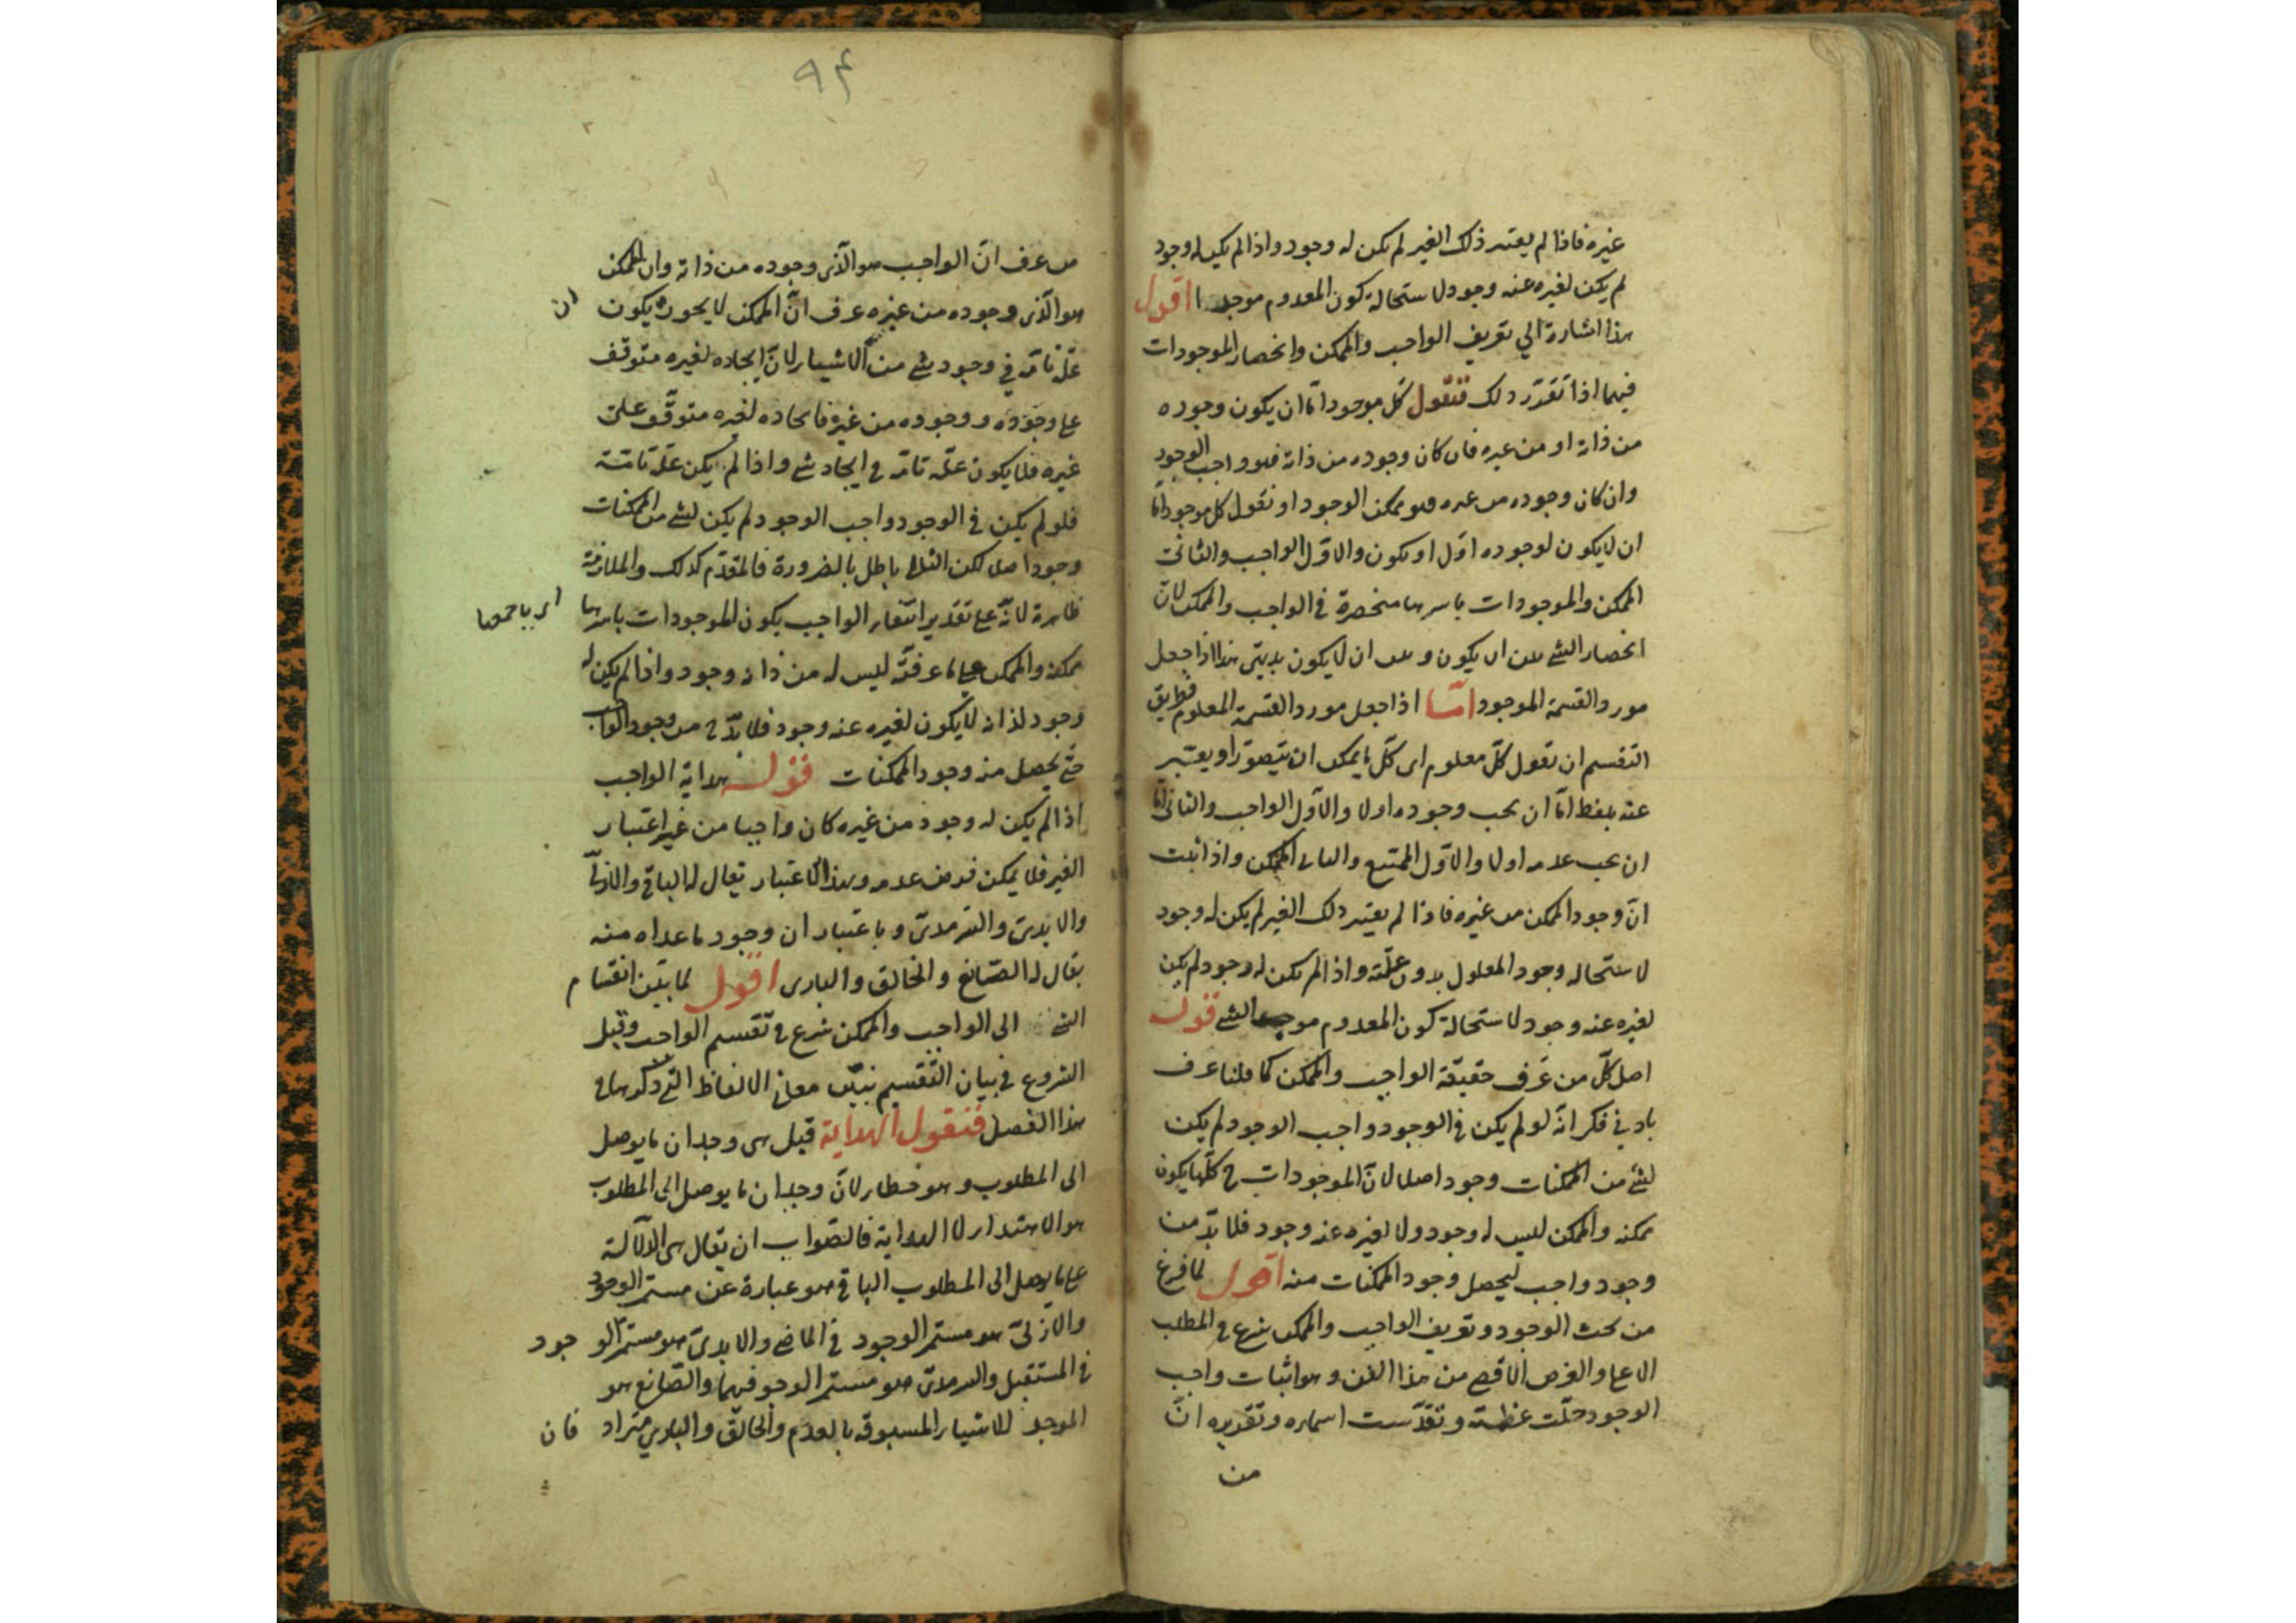 غيره فاذا لم يعتبر ذلك الغير لم يكن له وجود واذا لم يكن له وجود
لم يكن لغيره عنه وجود لاستحالة كون المعدوم موجدا اقول
هذا اشارة الي تعريف الواجب والممكن وانحصار الموجودات
فيهما اذا تقرر ذلك فنقول كل موجود اما ان يكون وجوده
من ذاته او من غيره فان كان وجوده من ذاته فهو واجب الوجود
وان كان وجوده من غيره فهو ممكن الوجود او نقول كل موجود اما
ان لا يكون لوجوده اول او يكون والاول الواجب والثاني
الممكن والموجودات باسرها منحصرة في الواجب والممكن لان
انحصار الشئ بين ان يكون وبين ان لا يكون بديهي هذا اذا جعل
مورد القسمة الموجود امّا اذا جعل مورد القسمة المعلوم فطريق
التقسيم ان نقول كلّ معلوم اى كلّ ما يمكن ان يتصوّر او يعبّر
عنه بلفظ امّا ان يجب وجوده اولا والاول الواجب والثاني امّا
ان يجب عدمه اولا والاوّل الممتنع والثاني الممكن واذا ثبت
انّ وجود الممكن من غيره فاذا لم يعتبر ذلك الغير لم يكن له وجود
لاستحاله وجود المعلول بدون علّته واذا لم يكن له وجود لم يكن
لغيره عنه وجود لاستحالة كون المعدوم موجد الشئ قوله
اصل كلّ من عَرف حقيقة الواجب والممكن كما قلنا عرف
بادني فكر انه لو لم يكن في الوجود واجب الوجود لم يكن
لشئ من الممكنات وجود اصلا لانّ الموجودات ح كلّها يكون
ممكنه والممكن ليس له وجود ولا لغيره عنه وجود فلا بدّ من
وجود واجب ليحصل وجود الممكنات منه اقول لما فرغ
من بحث الوجود وتعريف الواجب والممكن شرع في المطلب
الاعلي والغرض الاقصي من هذا الفن وهو اثبات واجب
الوجود جلّت عظمته وتقدّست اسماؤه وتقديره انّ
من
٩٤
من عرف انّ الواجب هو الّذي وجوده من ذاته وان الممكن
هو الّذي وجوده من غيره عرف انّ الممكن لا يجوز يكون
ان
علّة تامّة في وجود شئ من الاشياء لانّ ايجاده لغيره متوقف
علي وجوده ووجوده من غيره فايجاده لغيره متوقّف علي
غيره فلا يكون علّة تامّة في ايجاد شئ واذا لم يكن علّة تامّة
فلو لم يكن في الوجود واجب الوجود لم يكن لشئ من الممكنات
وجود اصلا لكن التالي باطل بالضرورة فالمقدّم كذلك والملازمة
ظاهرة لانّه علي تقدير انتفاء الواجب يكون الموجودات باسرها
اي باجمعها
ممكنه والممكن علي ما عرفته ليس له من ذاته وجود واذا لم يكن له
وجود لذاته لا يكون لغيره عنه وجود فلا بدّ ح من وجود الواجب
حتّي يحصل منه وجود الممكنات قوله هداية الواجب
اذا لم يكن له وجود من غيره كان واجبا من غير اعتبار
الغير فلا يمكن فرض عدمه وبهذا الاعتبار يقال له الباقي والازليّ
والابديّ والسرمديّ وباعتبار ان وجود ما عداه منه
يقال له الصّانع والخالق والباري اقول لما بيّن انقسام
الشئ الى الواجب والممكن شرع في تقسيم الواجب وقبل
الشروع في بيان التقسيم نبيّن معاني الالفاظ التي ذكرها في
هذا الفصل فنقول الهداية قيل هي وجدان ما يوصل
الى المطلوب وهو خطاء لانّ وجدان ما يوصل الي المطلوب
هو الاهتداء لا الهداية فالصّواب ان يقال هي الدّلالة
علي ما يوصل الى المطلوب الباقي هو عبارة عن مستمر الوجود
والازليّ هو مستمر الوجود في الماضي والابديّ هو مستمرّ الوجود
في المستقبل والسرمديّ هو مستمر الوجود فيهما والصّانع هو
الموجد للاشياء المسبوقه بالعدم والخالق والباري مترادفان